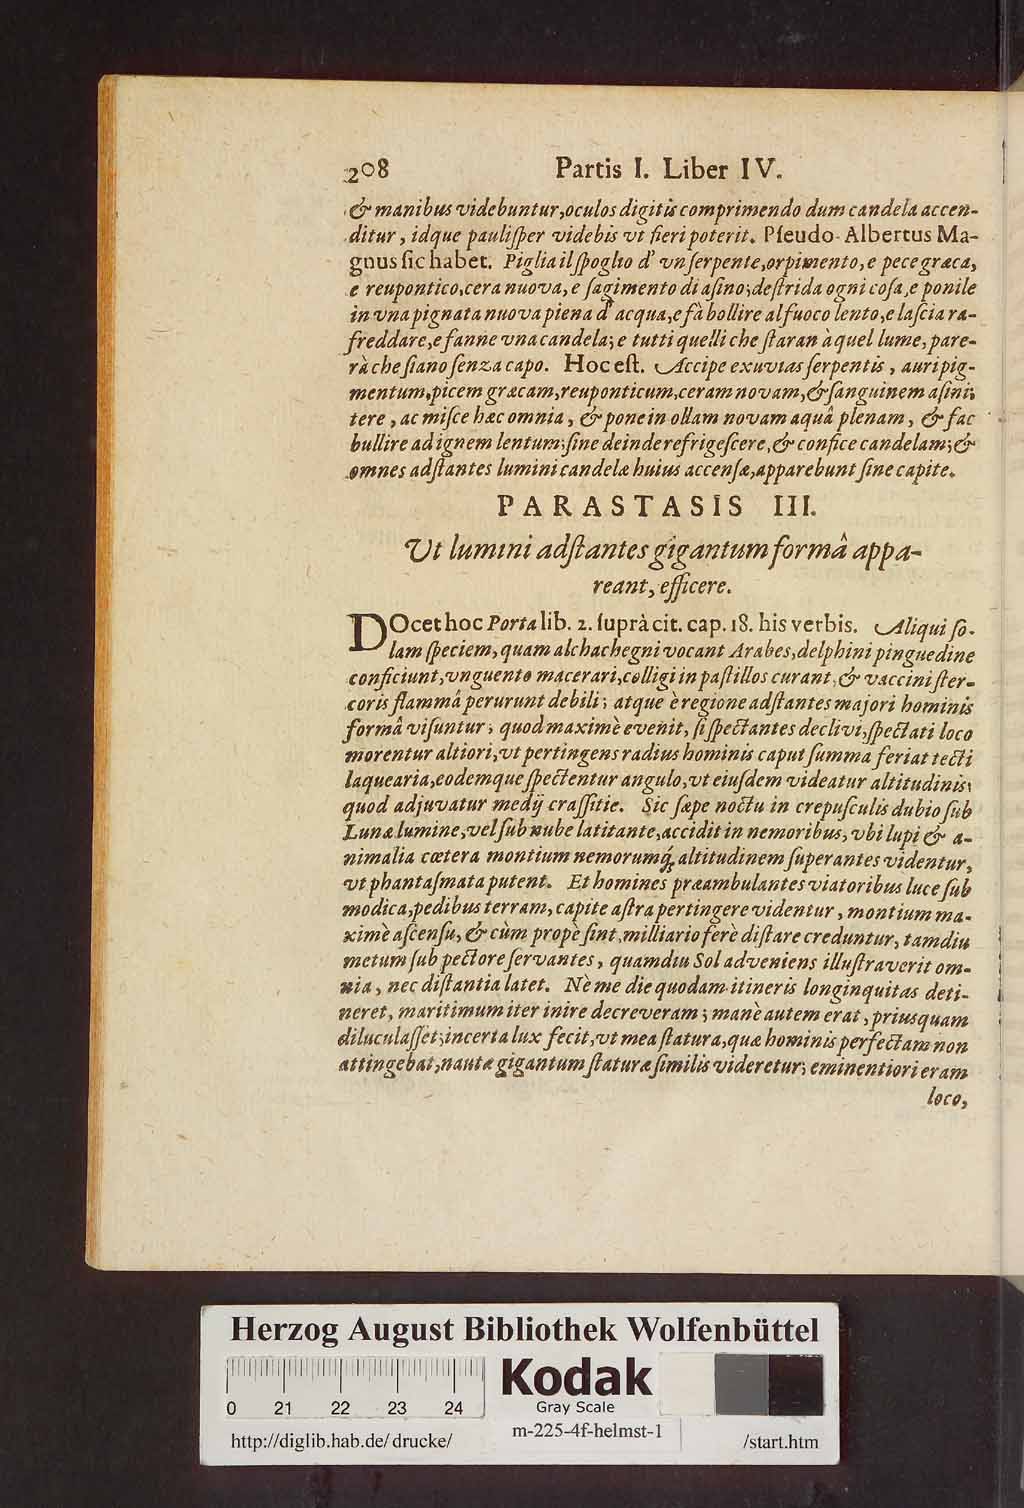 208 Partis I. Liber IV.
& manibus videbuntur, oculos digitis comprimendo dum candela accen-
ditur, idque pauliſper videbis vt fieri poterit. Pſeudo-Albertus Ma-
gnus ſic habet. Piglia il ſpoglio d' vn ſerpente, orpimento, e pece græca,
e reupontico, cera nuova, e ſagimento di aſino; deſtrida ogni coſa, e ponile
in vna pignata nuova piena d' acqua, e fà bollire al fuoco lento, e laſcia ra-
freddare, e fanne vna candela; e tutti quelli che ſtaran à quel lume, pare-
rà che ſiano ſenza capo. Hoc eſt. Accipe exuvias ſerpentis, auripig-
mentum, picem græcam, reuponticum, ceram novam, & ſanguinem aſini;
tere, ac miſce hæc omnia, & pone in ollam novam aquâ plenam, & fac
bullire ad ignem lentum; ſine deinde refrigeſcere, & confice candelam; &
omnes adſtantes lumini candelæ huius accenſæ, apparebunt ſine capite.
PARASTASIS III.
Ut lumini adſtantes gigantum formâ appa-
reant, efficere.
DOcet hoc Porta lib. 2. ſuprà cit. cap. 18. his verbis. Aliqui ſo-
lam ſpeciem, quam alchachegni vocant Arabes, delphini pinguedine
conficiunt, vnguento macerari, colligi in paſtillos curant, & vaccini ſter-
coris flammâ perurunt debili; atque è regione adſtantes majori hominis
formâ viſuntur; quod maximè evenit, ſi ſpectantes declivi, ſpectati loco
morentur altiori, vt pertingens radius hominis caput ſumma feriat tecti
laquearia, eodemque ſpectentur angulo, vt eiuſdem videatur altitudinis;
quod adjuvatur medij craſſitie. Sic ſæpe noctu in crepuſculis dubio ſub
Lunæ lumine, vel ſub nube latitante, accidit in nemoribus, vbi lupi & a-
nimalia cœtera montium nemorumq́; altitudinem ſuperantes videntur,
vt phantaſmata putent. Et homines præambulantes viatoribus luce ſub
modica, pedibus terram, capite aſtra pertingere videntur, montium ma-
ximè aſcenſu, & cùm propè ſint, milliario ferè diſtare creduntur, tamdiu
metum ſub pectore ſervantes, quamdiu Sol adveniens illuſtraverit om-
nia, nec diſtantia latet. Nè me die quodam itineris longinquitas deti-
neret, maritimum iter inire decreveram; manè autem erat, priusquam
diluculaſſet; incerta lux fecit, vt mea ſtatura, quæ hominis perfectam non
attingebat, nautæ gigantum ſtaturæ ſimilis videretur; eminentiori eram
loco,
Herzog August Bibliothek Wolfenbüttel
0 21 22 23 24
Kodak
Gray Scale
http://diglib.hab.de/drucke/ m-225-4f-helmst-1 /start.htm